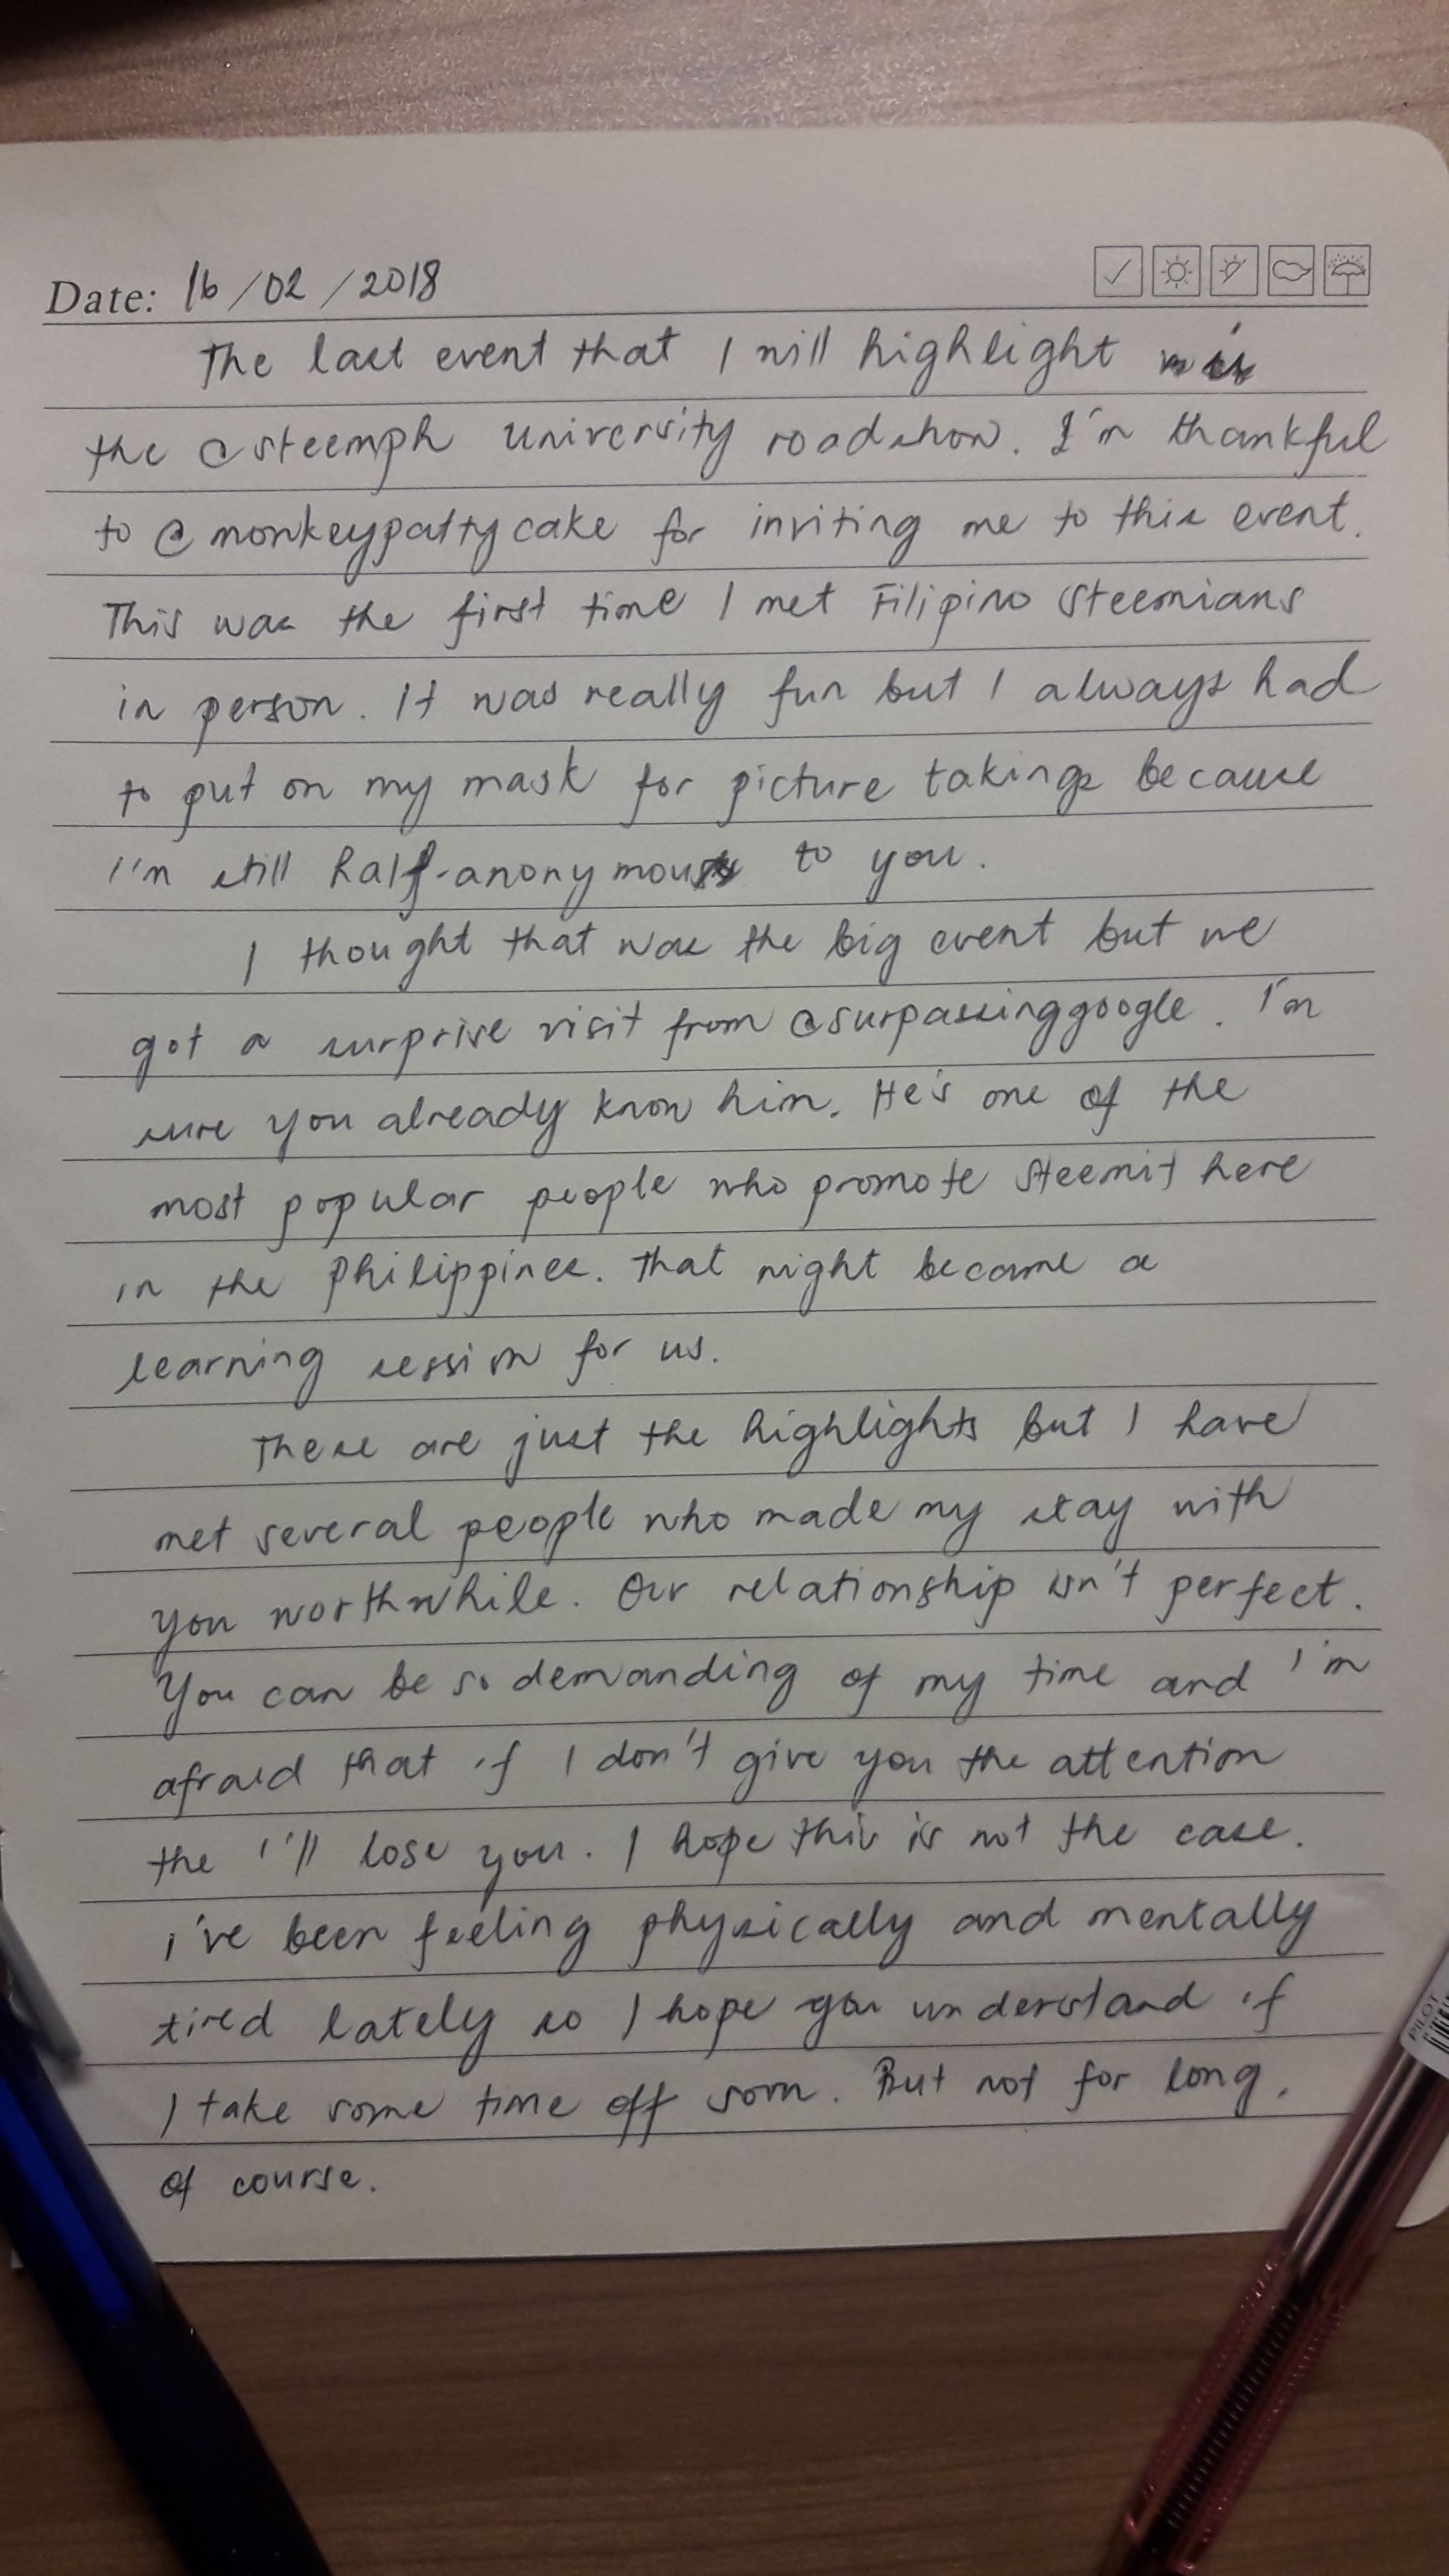 Date: 16/02/2018
The last event that I will highlight is
the @steemph university roadshow. I'm thankful
to @monkeypattycake for inviting me to this event.
This was the first time I met Filipino Steemians
in person. It was really fun but I always had
to put on my mask for picture takings because
I'm still half-anonymous to you.
I thought that was the big event but we
got a surprise visit from @surpassinggoogle. I'm
sure you already know him. He's one of the
most popular people who promote Steemit here
in the Philippines. That night became a
learning session for us.
These are just the highlights but I have
met several people who made my stay with
you worthwhile. Our relationship isn't perfect.
You can be so demanding of my time and I'm
afraid that if I don't give you the attention
the I'll lose you. I hope this is not the case.
I've been feeling physically and mentally
tired lately so I hope you understand if
I take some time off soon. But not for long,
of course.
PILOT